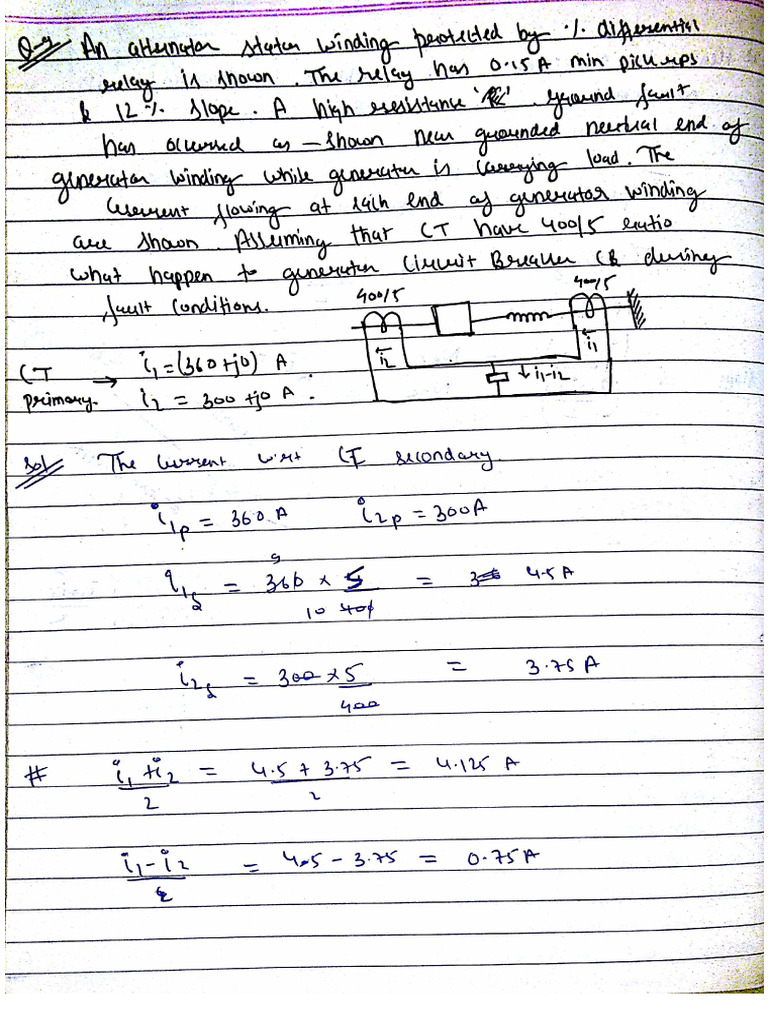 Q-9 An alternator stator winding protected by % differential
relay is shown. The relay has 0.15A min pick ups
& 12% slope. A high resistance ground fault
has occurred as shown near grounded neutral end of
generator winding while generator is carrying load. The
current flowing at each end of generator winding
are shown. Assuming that CT have 400/5 ratio
what happen to generator Circuit Breaker CB during
fault conditions.
400/5
400/5
i2
i1
↓ i1-i2
CT primary. → i1 = (360+j0) A
i2 = 300+j0 A.
Sol The current wrt CT secondary.
i1p = 360 A i2p = 300A
i1s = 360 × 5 / 400 = 4.5 A
9
10
i2s = 300 × 5 / 400 = 3.75 A
# i1 + i2 / 2 = 4.5 + 3.75 / 2 = 4.125 A
i1 - i2 = 4.5 - 3.75 = 0.75A